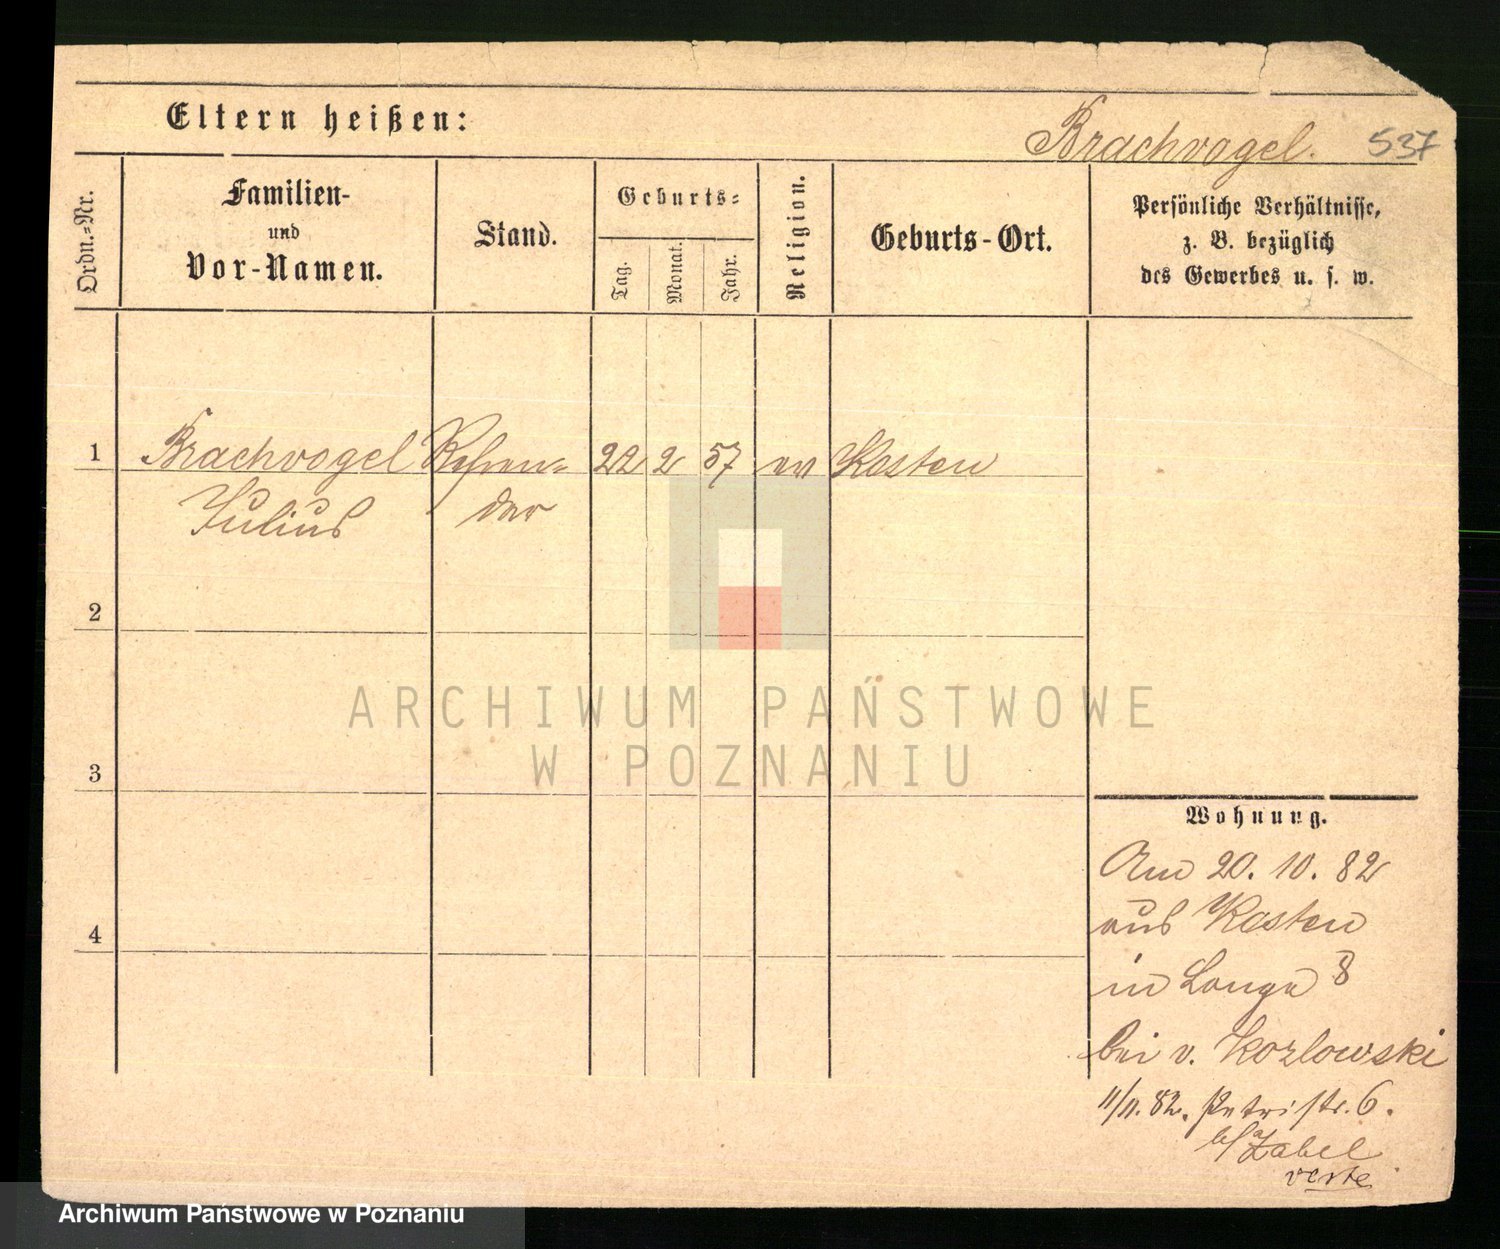 Eltern heißen:
Brachvogel. 537
Ordn.=Nr.
Familien-
und
Vor-Namen.
Stand.
Geburts=
Tag.
Monat.
Jahr.
Religion.
Geburts-Ort.
Persönliche Verhältnisse,
z. B. bezüglich
des Gewerbes u. s. w.
1 Brachvogel Referen= 22 2 57 ev Kosten
Julius dar
2
3
4
Wohnung.
Am 20. 10. 82
aus Kosten
in Lange 8
bei v. Kozlowski
11/11. 82. Petristr. 6.
b/ Zabel
verte
ARCHIWUM PAŃSTWOWE
W POZNANIU
Archiwum Państwowe w Poznaniu